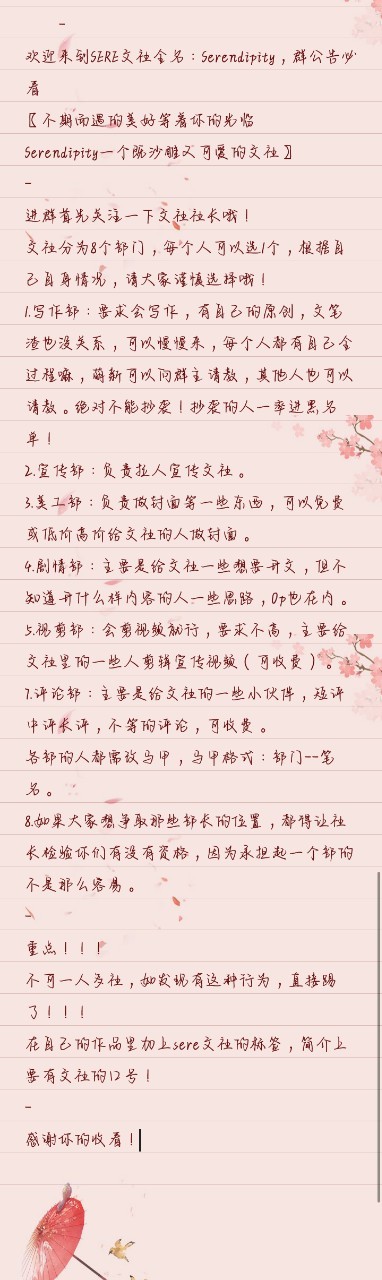 -
欢迎来到SERE文社全名：Serendipity，群公告必
看
〖不期而遇的美好等着你的光临
Serendipity一个既沙雕又可爱的文社〗
-
进群首先关注一下文社社长哦！
文社分为8个部门，每个人可以选1个，根据自
己自身情况，请大家谨慎选择哦！
1.写作部：要求会写作，有自己的原创，文笔
渣也没关系，可以慢慢来，每个人都有自己全
过程嘛，萌新可以问群主请教，其他人也可以
请教。绝对不能抄袭！抄袭的人一率进黑名
单！
2.宣传部：负责拉人宣传文社。
3.美工部：负责做封面等一些东西，可以免费
或低价高价给文社的人做封面。
4.剧情部：主要是给文社一些想要开文，但不
知道开什么样内容的人一些思路，Op也在内。
5.视剪部：会剪视频就行，要求不高，主要给
文社里的一些人剪辑宣传视频（可收费）。
7.评论部：主要是给文社的一些小伙伴，短评
中评长评，不等的评论，可收费。
各部的人都需改马甲，马甲格式：部门--笔
名。
8.如果大家想争取那些部长的位置，都得让社
长检验你们有没有资格，因为承担起一个部的
不是那么容易。
-
重点！！！
不可一人多社，如发现有这种行为，直接踢
了！！！
在自己的作品里加上sere文社的标签，简介上
要有文社的口号！
-
感谢你的收看！